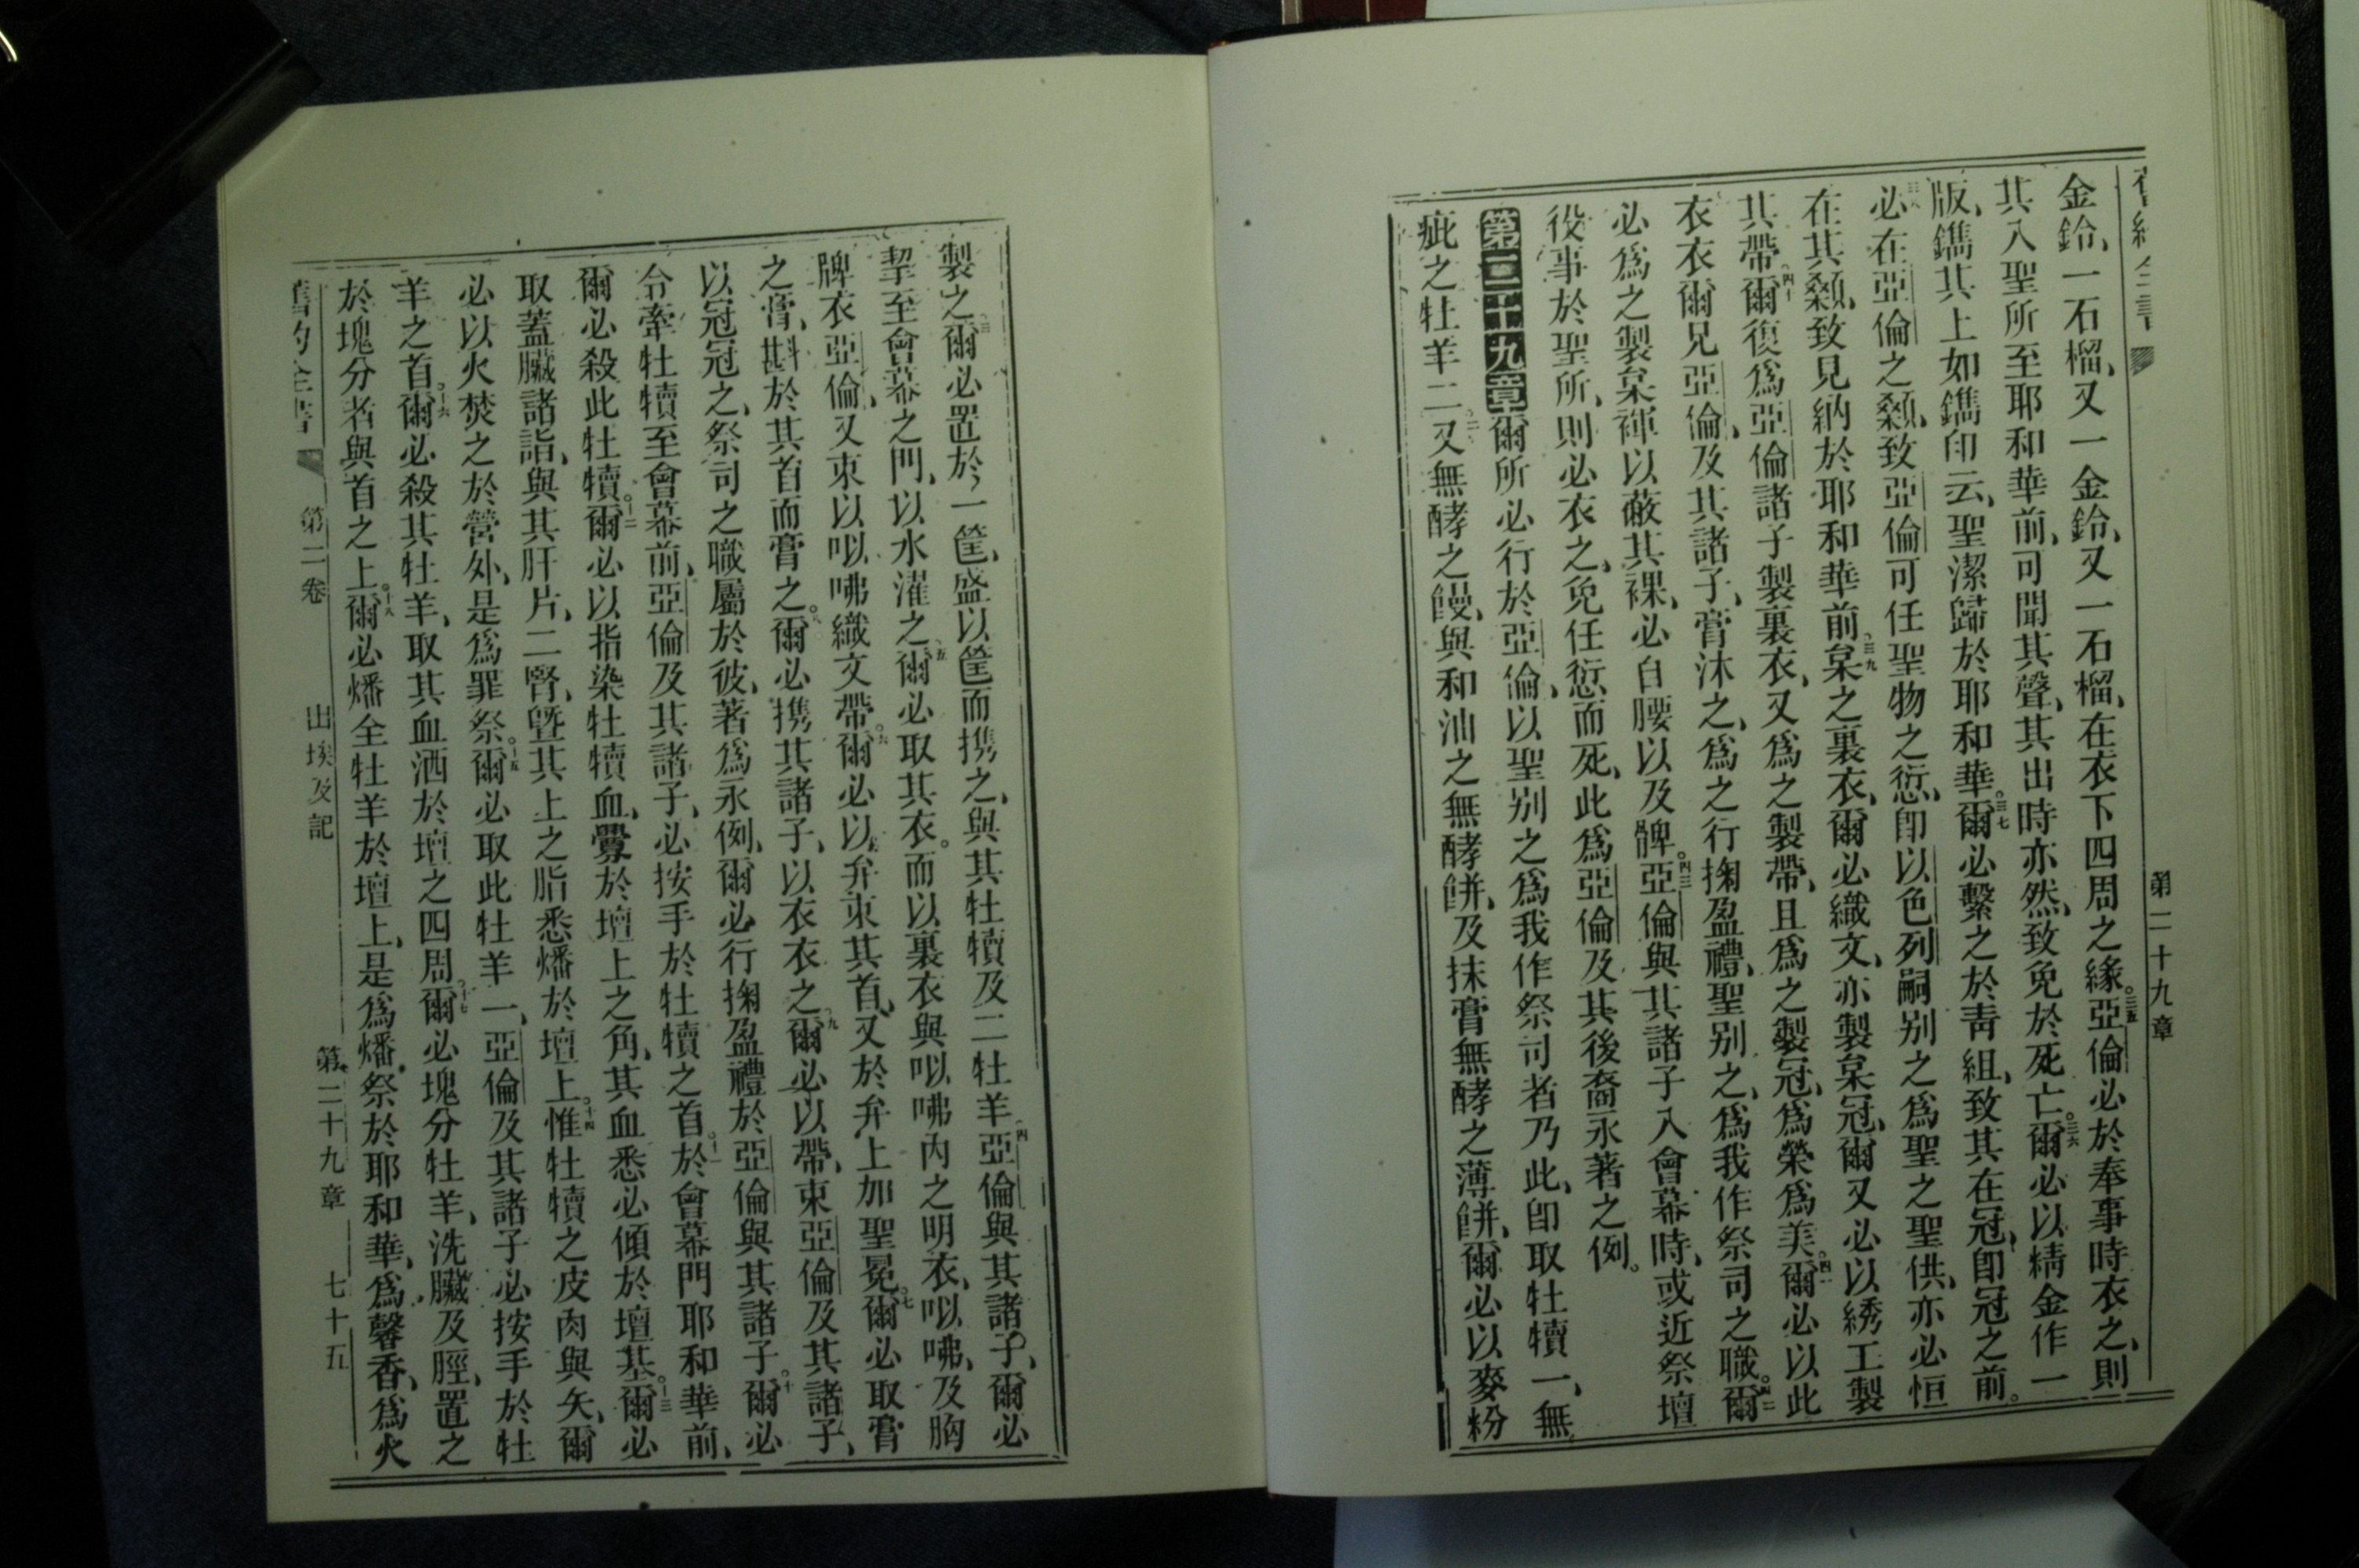 第二十九章
金鈴、一石榴、又一金鈴、又一石榴、在衣下四周之緣。三五亞倫必於奉事時衣之、則
其入聖所至耶和華前、可聞其聲、其出時亦然、致免於死亡。三六爾必以精金作一
版、鐫其上如鐫印云、聖潔歸於耶和華。三七爾必繫之於靑組、致其在冠、卽冠之前。
三八必在亞倫之顙、致亞倫可任聖物之愆、卽以色列嗣别之爲聖之聖供、亦必恒
在其顙、致見納於耶和華前。三九枲之裏衣、爾必織文、亦製枲冠、爾又必以綉工製
其帶。四十爾復爲亞倫諸子製裏衣、又爲之製帶、且爲之製冠、爲榮爲美。四一爾必以此
衣衣爾兄亞倫、及其諸子、膏沐之、爲之行掬盈禮、聖别之、爲我作祭司之職。四二爾
必爲之製枲褌以蔽其裸、必自腰以及髀。四三亞倫與其諸子入會幕時、或近祭壇
役事於聖所、則必衣之、免任愆而死、此爲亞倫及其後裔永著之例。
第二十九章爾所必行於亞倫、以聖别之爲我作祭司者乃此、卽取牡犢一、無
疵之牡羊二。二又無酵之饅、與和油之無酵餅、及抹膏無酵之薄餅、爾必以麥粉
製之。三爾必置於一筐、盛以筐而携之、與其牡犢及二牡羊。四亞倫與其諸子、爾必
挈至會幕之門、以水濯之。五爾必取其衣。而以裏衣與㕽咈內之明衣、㕽咈、及胸
牌衣亞倫、又束以㕽咈織文帶。六爾必以弁束其首、又於弁上加聖冕。七爾必取膏
之膏、斟於其首而膏之。八爾必携其諸子、以衣衣之。九爾必以帶、束亞倫及其諸子、
以冠冠之、祭司之職屬於彼、著爲永例、爾必行掬盈禮於亞倫與其諸子。十爾必
令牽牡犢至會幕前、亞倫及其諸子、必按手於牡犢之首。十一於會幕門耶和華前、
爾必殺此牡犢。十二爾必以指染牡犢血、釁於壇上之角、其血悉必傾於壇基。十三爾必
取蓋臟諸脂、與其肝片、二腎、曁其上之脂悉燔於壇上。十四惟牡犢之皮肉與矢、爾
必以火焚之於營外、是爲罪祭。十五爾必取此牡羊一、亞倫及其諸子必按手於牡
羊之首。十六爾必殺其牡羊、取其血洒於壇之四周。十七爾必塊分牡羊、洗臟及脛、置之
於塊分者與首之上。十八爾必燔全牡羊於壇上、是爲燔祭於耶和華、爲馨香、爲火
舊約全書 第二卷 出埃及記 第二十九章 七十五